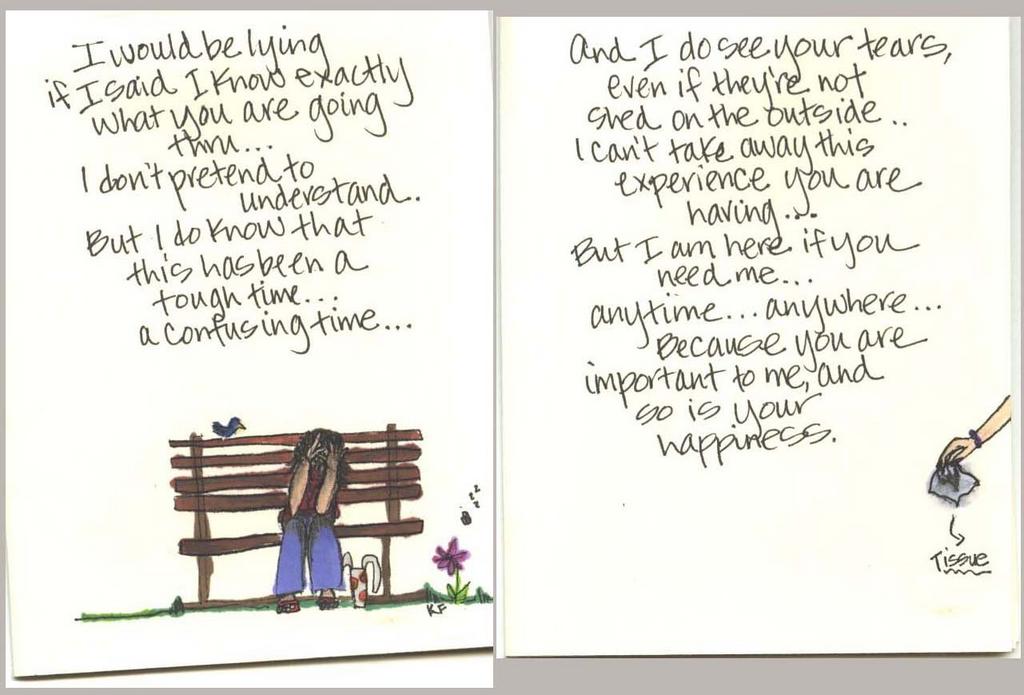 I would be lying
if I said I know exactly
what you are going
thru...
I don't pretend to
understand.
But I do know that
this has been a
tough time...
a confusing time...
KF
And I do see your tears,
even if they're not
shed on the outside..
I can't take away this
experience you are
having...
But I am here if you
need me...
anytime... anywhere...
Because you are
important to me, and
so is your
happiness.
Tissue